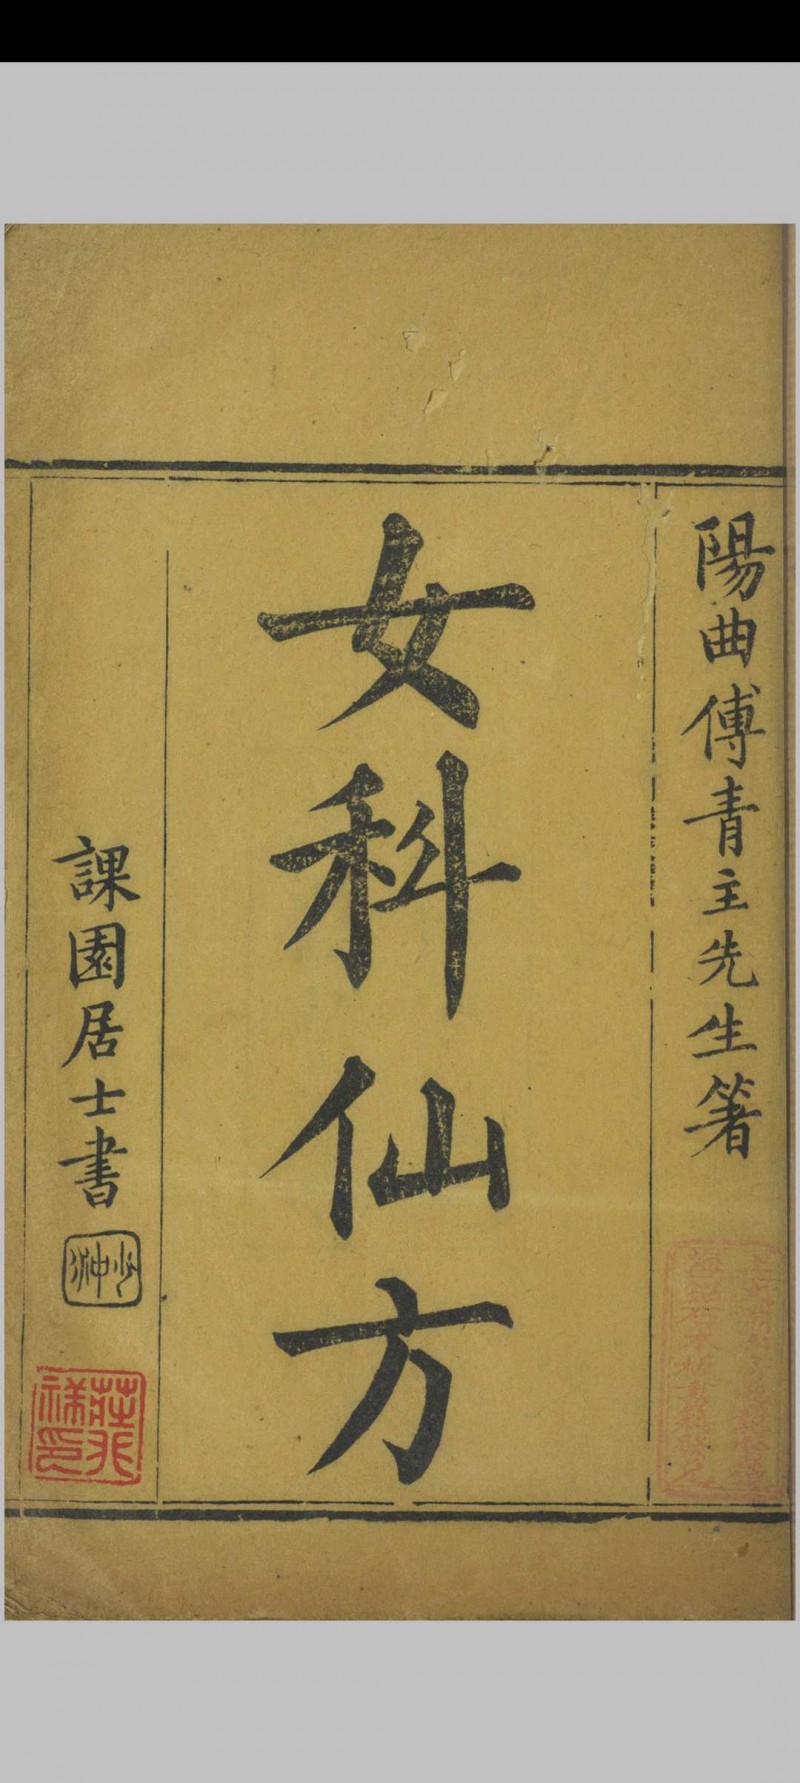 陽曲傅青主先生箸
女科仙方
課園居士書
少沖